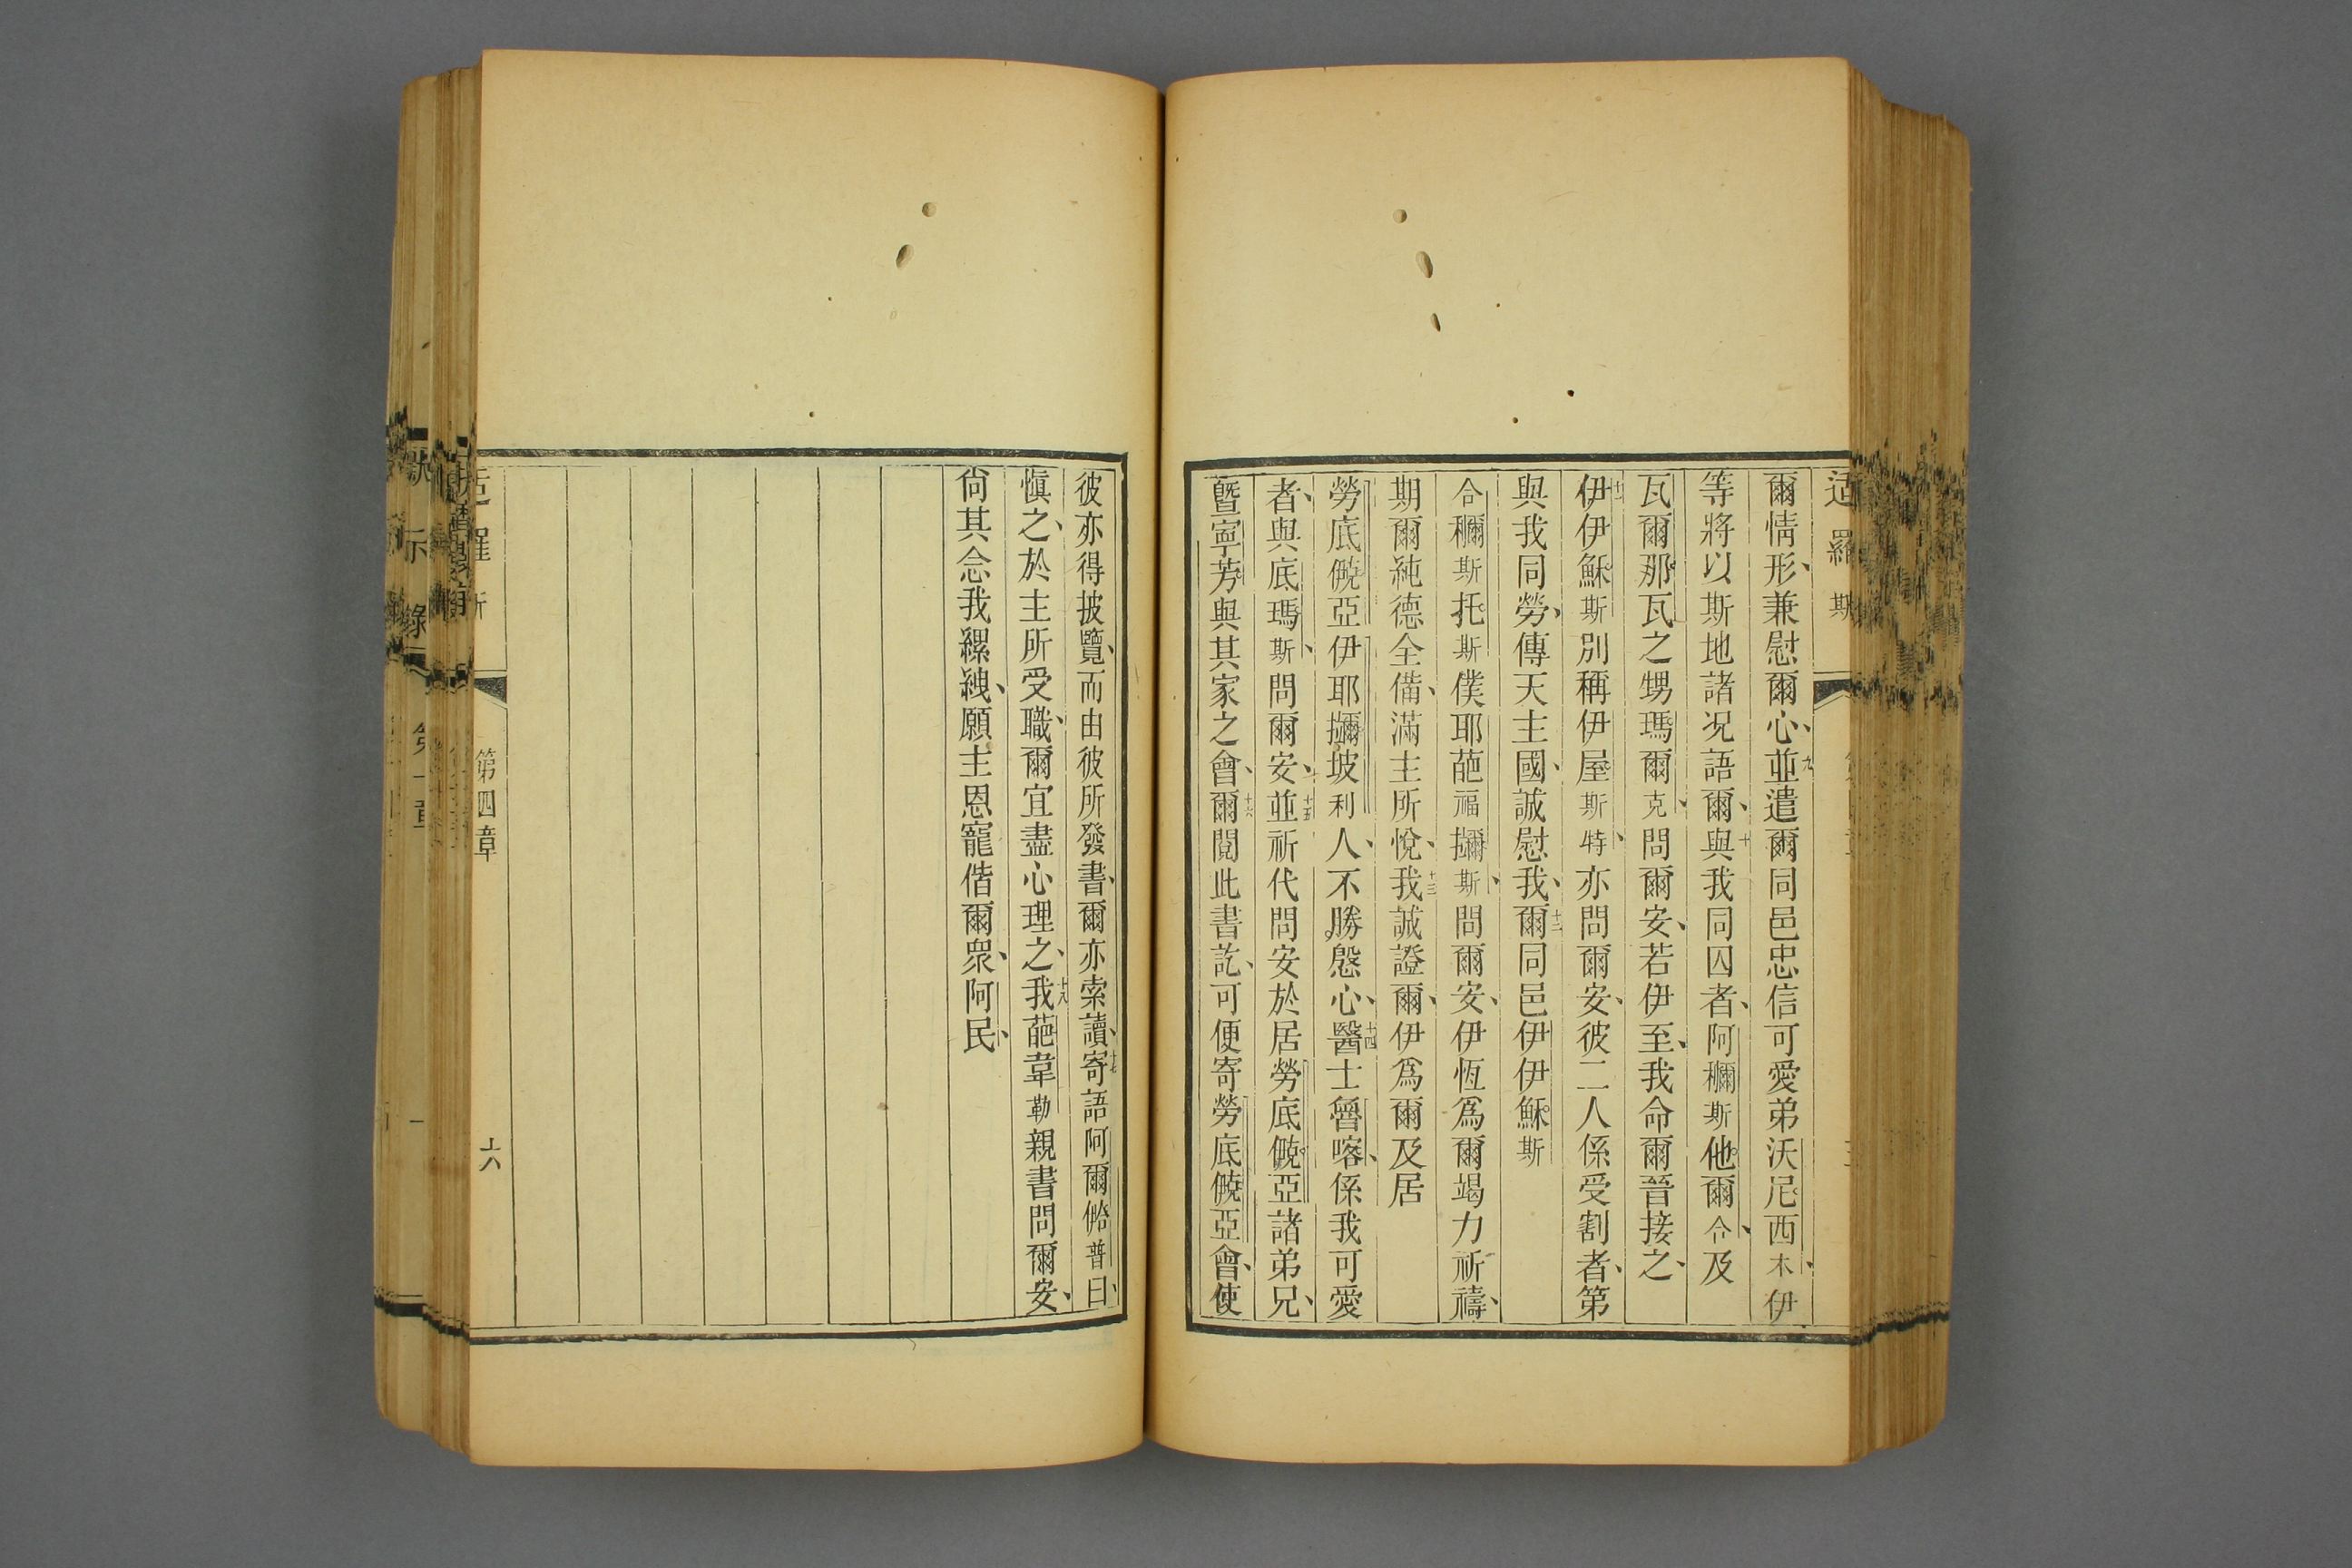 适羅斯
爾情形、兼慰爾心、九並遣爾同邑忠信可愛弟沃尼西木、伊
等將以斯地諸况語爾、十與我同囚者、阿穪斯他爾仒、及
瓦爾那瓦之甥瑪爾克、問爾安、若伊至、我命爾晉接之、
十一伊伊穌斯別稱伊屋斯特、亦問爾安、彼二人係受割者、第
與我同勞、傳天主國、誠慰我、十二爾同邑伊伊穌斯
合穪斯托斯僕耶葩福攡斯、問爾安、伊恆爲爾竭力祈禱、
期爾純德全備、滿主所悅、十三我誠證爾、伊爲爾及居
勞底僥亞伊耶攡坡利人、不勝慇心、十四醫士魯喀、係我可愛
者、與底瑪斯、問爾安、十五並祈代問安於居勞底僥亞諸弟兄、
曁寧芳與其家之會、十六爾閱此書訖、可便寄勞底僥亞會、使
彼亦得披覽、而由彼所發書、爾亦索讀、十七寄語阿爾佮普曰、
愼之、於主所受職、爾宜盡心理之、十八我葩韋勒親書問爾安、
尙其念我縲絏、願主恩寵偕爾衆、阿民、
第四章
六